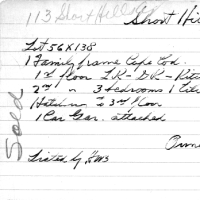 113 Short Hills
Short Hi
Lot 56 X 138
1 Family frame Cape Cod.
1st floor LR - DR - Kitc
2nd " 3 bedrooms 1 tile
Hatch to 3rd floor
1 Car Gar. attached
Sold
Listed by